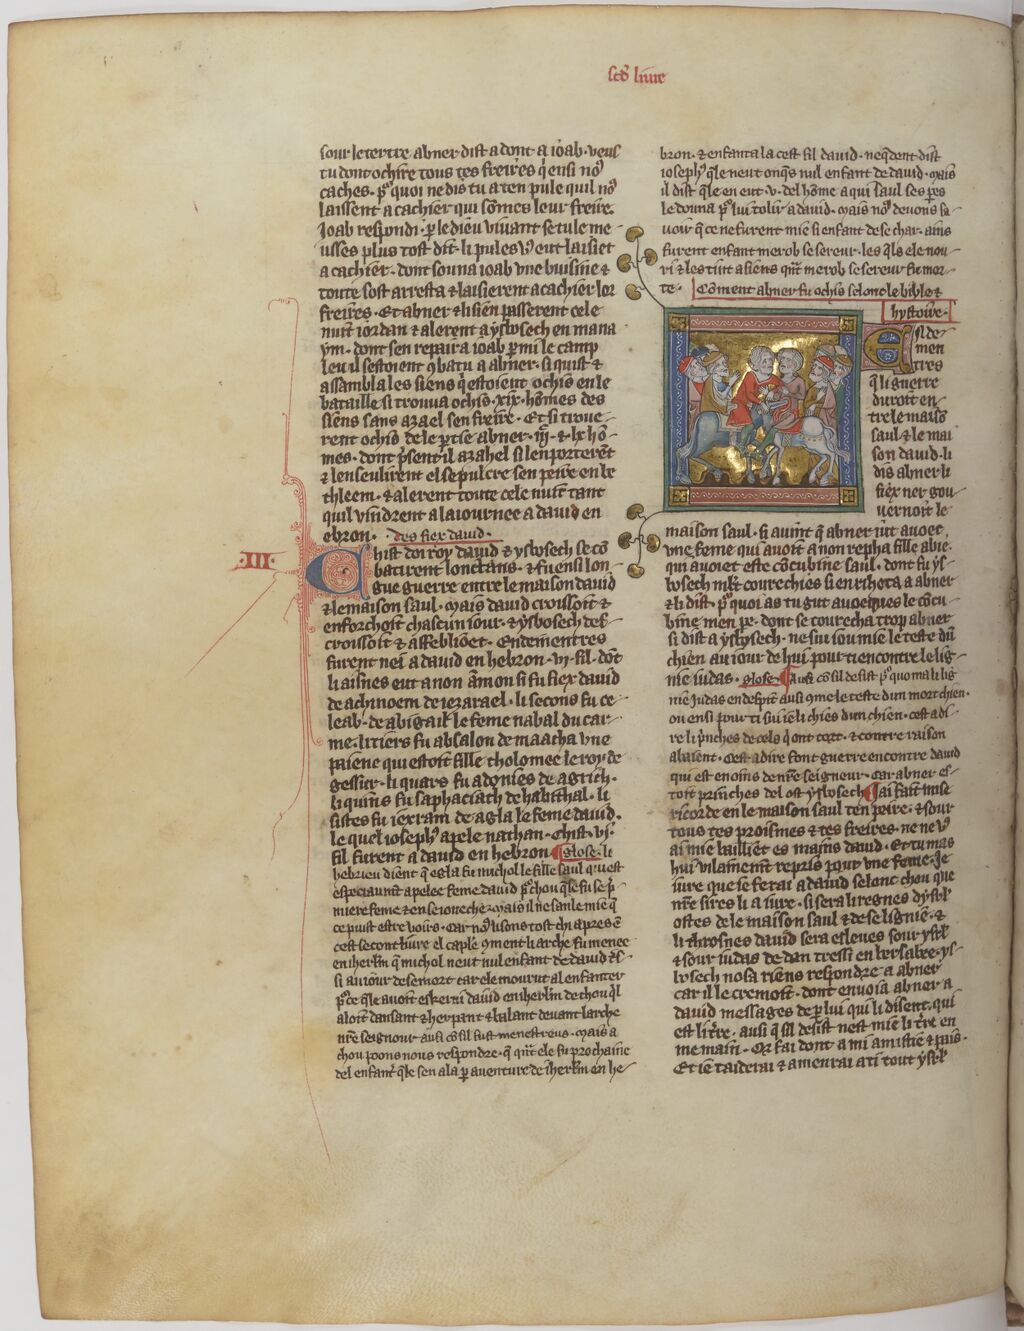 scds livre
sour le tertre abner dist adont a ioab · veus
tu dont ochire tous tes freires q̇ ensi no9
caches · p̱ quoi ne dis tu a ten pule quil no9
laissent a cachier qui sōmes leur freire ·
Joab respondi · p̱ le dieu viuant se tu le me
usses plus tost dit · li pules veut laisiet
a cachier · dont sonna ioab vne buisine ⁊
toute sost arresta ⁊ laisierent a cachier lor
freires · Et abner ⁊ li sien passerent cele
nuit iordan ⁊ alerent a ysbosech en mana
ym · dont sen repaira ioab p̱mi le camp
leu il sestoient 9batu a abner · si quist ⁊
assambla les siens q̇ estoient ochis en le
bataille si trouua ochis · xix · hōmes des
siens sans azael sen freire · Et si trouue
rent ochis de le p̱tie abner · iij · ⁊ lx hō
mes · dont p̱sent il azahel si lenporterēt
⁊ lenseulirent el sepulcre sen peire en be
thleem · ⁊ alerent toute cele nuit tant
quil vindrent a la iournee a dauid en
ebron · des fiex dauid ·
·III·
Chist doi roy dauid ⁊ ysbosech se cō
batirent lonctans · ⁊ fu ensi lon
gue guerre entre le maison dauid
⁊ le maison saul · Mais dauid croissoit ⁊
enforchoit chascun iour · ⁊ ysbosech des
croissoit ⁊ affebliōet · Endementres
furent nei a dauid en hebron · vi · fil · dōt
li aisnes eut a non āmon si fu fiex dauid
de achinoem de iezarael · li secons fu ce
leab · de abigail le feme nabal du car
me · li tiers fu absalon de maacha vne
paiene qui estoit fille tholomee le roy de
gessur · li quars fu adonies de agrith ·
li quins fu saphaciach de habithal · li
sistes fu iexram de agla le feme dauid ·
le quel ioseph9 apele nathan · Chist · vi ·
fil furent a dauid en hebron · glose · li
hebrieu dient q̄ egla fu michol le fille saul q̇ est
especiaumt apelee feme dauid p̱ chou q̄le fu se p̱
miere feme ⁊ en se ioneche · Mais il ne sanle mie q̄
ce puist estre voirs · Car no9 lisons tost chi apres ē
cest secont liure el caple 9ment li arche fu menee
en iherlm q̄ michol neut nul enfant de dauid
si au iour de se mort car ele mourut al enfanter
p̱ ce q̄le auoit eskerni dauid en iherlm de chou q̄l
aloit dansant ⁊ herpant ⁊ balant deuant larche
nr̄e seigneur ausi cō sil fust menestreus · Mais a
chou poons nous respondre · q̄ q̄nt ele fu prochaine
del enfant q̄le sen ala p̱ auenture de iherlm en he
bron · ⁊ enfanta la cest fil dauid · neq̄dent dist
ioseph9 q̄le neut onq̄s nul enfant de dauid · Mais
il dist q̄le en eut · v · del hōme a qui saul ses p̱es
le donna p̱ lui tolir a dauid · Mais no9 deuons sa
uoir q̄ ce ne furent mie si enfant de se char · ains
furent enfant merob se sereur · les q̄ls ele nou
ri ⁊ les tint a siens q̄nt merob se sereur fu mor
te · Cōment abner fu ochis selonc le bible ⁊
hystoire ·
Ende
men
tres
q̄ li guerre
duroit en
tre le maisō
saul ⁊ le mai
son dauid · li
dis abner li
fiex ner gou
uernoit le
maison saul · si auint q̄ abner iut auoec
vne feme qui auoit a non repha fille abie ·
qui auoiet este cōcubine saul · dont fu ys
bosech mlt courechies si en rihota a abner
⁊ li dist · p̱ quoi as tu gut auoeques le cōcu
bine men pe · dont se courecha trop abner
si dist a ysbysech · ne sui iou mie le teste dū
chien au iour de hui pour ti encontre le lig
nie iudas · glose · Ausi cō sil desist p̱ quo ma li lig
nie Judas en despit ausi 9me le teste dun mort chien ·
ou ensi pour ti sui ie li chies dun chien · cest a di
re li p̱nches de cels q̄ ont tort · ⁊ contre raison
abaient · Cest a dire font guerre encontre dauid
qui est enoins de nr̄e seigneur · Car abner es
toit prinches del ost ysbosech · Jai fait mise
ricorde en le maison saul ten peire · ⁊ sour
tous tes proismes ⁊ tes freires · ne ne
ai mie bailliet es mains dauid · Et tu mas
hui vilainemt repris pour vne feme · Je
iure que ie ferai a dauid selonc chou que
nr̄e sires li a iure · si sera li regnes
ostes de le maison saul ⁊ de se lignie · ⁊
li throsnes dauid sera esleues sour
⁊ sour iudas de dan tressi en bersabee · ys
bosech nosa riens respondre a abner
car il le cremoit · dont enuoia abner a
dauid messages de p̱ lui qui li disent · qui
est li t̄re · ausi q̄ sil desist nest mie li t̄re en
me main · Or fai dont a mi amistie ⁊ pais ·
Et ie taiderai ⁊ amenrai a ti tout